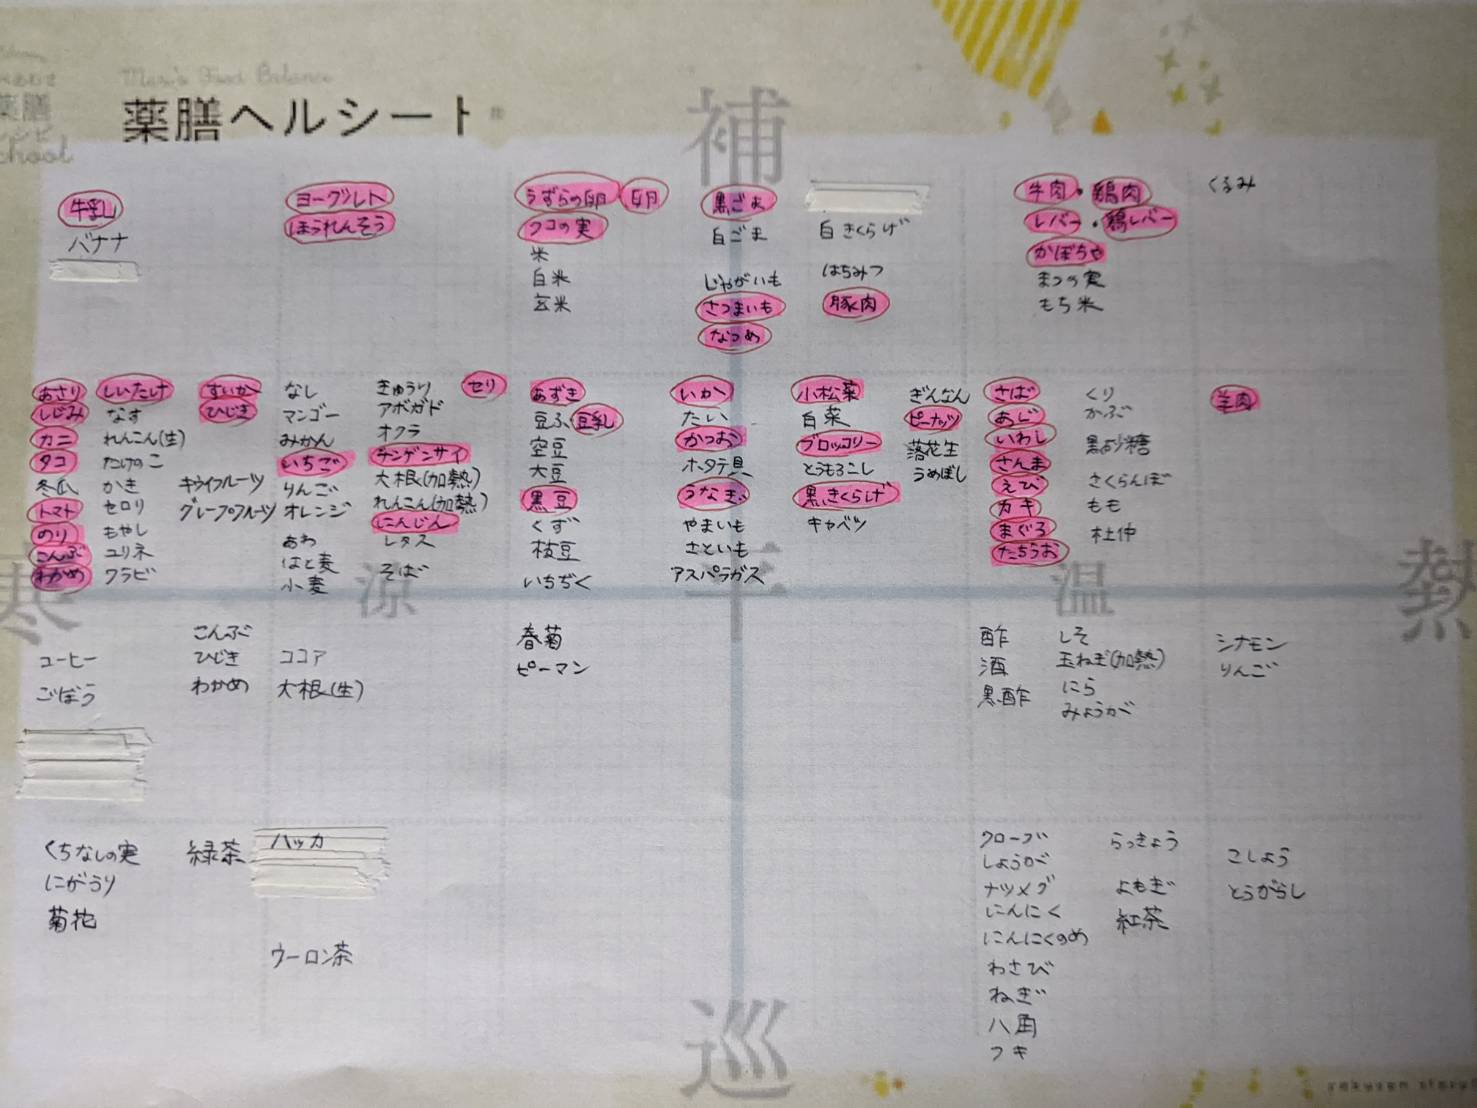 薬膳
school
Mari's Food Balance
薬膳ヘルシート
補
牛乳
バナナ
ヨーグルト
ほうれんそう
うずらの卵 卵
クコの実
米
白米
玄米
黒ごま
白ごま
じゃがいも
さつまいも
なつめ
白きくらげ
はちみつ
豚肉
牛肉・鶏肉
レバー・鶏レバー
かぼちゃ
まつの実
もち米
くるみ
あさり
しじみ
カニ
タコ
冬瓜
トマト
のり
こんぶ
わかめ
しいたけ
なす
れんこん(生)
たけのこ
かき
セロリ
もやし
ユリネ
ワラビ
すいか
ひじき
キウイフルーツ
グレープフルーツ
なし
マンゴー
みかん
いちご
りんご
オレンジ
あわ
はと麦
小麦
きゅうり
アボガド
オクラ
チンゲンサイ
大根(加熱)
れんこん(加熱)
にんじん
レタス
そば
セリ
あずき
豆ふ 豆乳
空豆
大豆
黒豆
くず
枝豆
いちぢく
いか
たい
かつお
ホタテ貝
うなぎ
やまいも
さといも
アスパラガス
小松菜
白菜
ブロッコリー
とうもろこし
黒きくらげ
キャベツ
ぎんなん
ピーナッツ
落花生
うめぼし
さば
あじ
いわし
さんま
えび
カキ
まぐろ
たちうお
くり
かぶ
黒砂糖
さくらんぼ
もも
杜仲
羊肉
寒
涼
平
温
熱
コーヒー
ごぼう
こんぶ
ひじき
わかめ
ココア
大根(生)
春菊
ピーマン
酢
酒
黒酢
しそ
玉ねぎ(加熱)
にら
みょうが
シナモン
りんご
くちなしの実
にがうり
菊花
緑茶
ハッカ
ウーロン茶
クローブ
しょうが
ナツメグ
にんにく
にんにくのめ
わさび
ねぎ
八角
フキ
らっきょう
よもぎ
紅茶
こしょう
とうがらし
巡